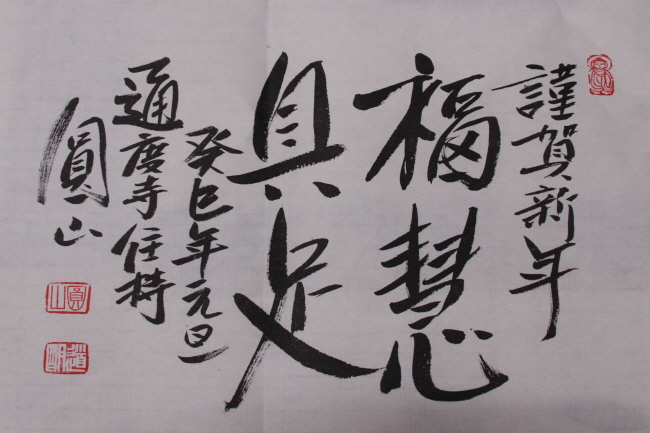 謹賀新年
福慧
具足
癸巳年元旦
通度寺住持
圓山
圓山